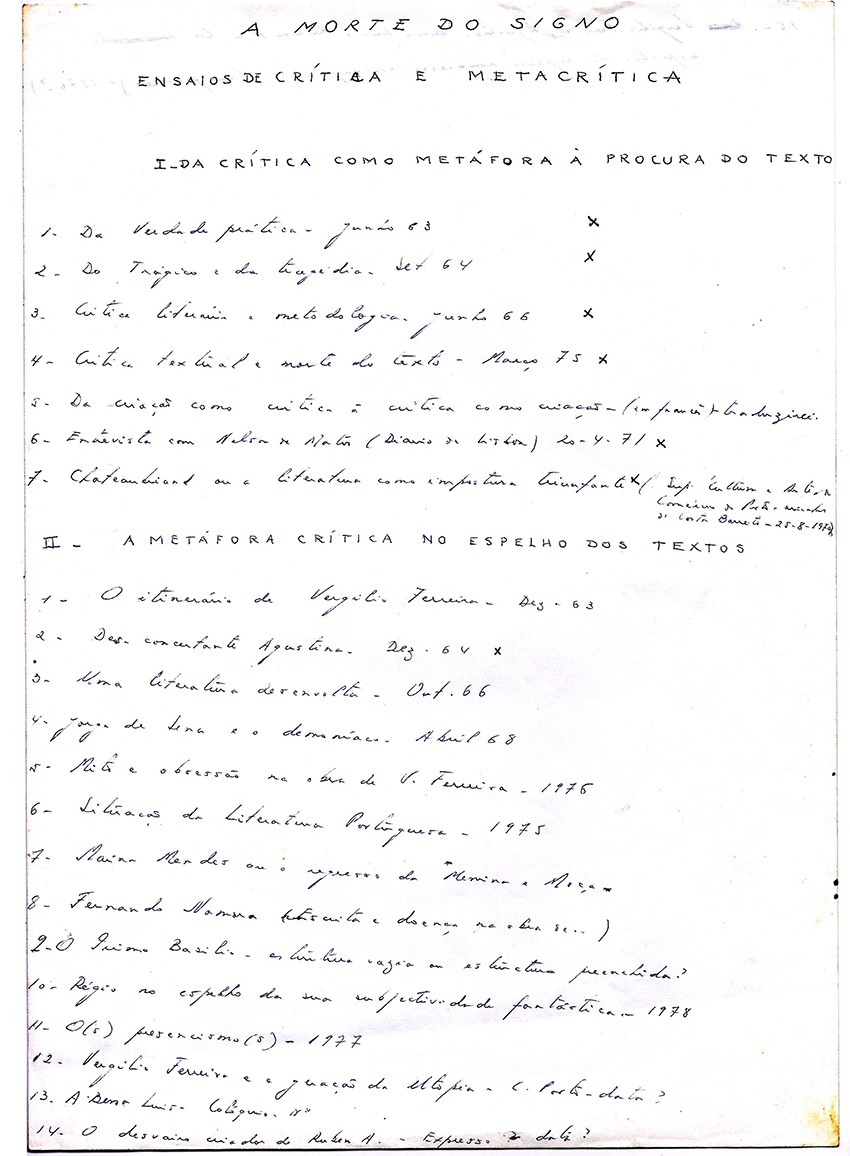 A MORTE DO SIGNO
ENSAIOS DE CRÍTICA E METACRÍTICA
I_DA CRÍTICA COMO METÁFORA À PROCURA DO TEXTO
1- Da Verdade prática - junho 63 x
2- Do Trágico e da tragédia - Set 64 x
3- Crítica literária e metodologia - junho 66 x
4- Crítica textual e morte do texto - Março 75 x
5- Da criação como crítica à crítica como criação - (em francês) traduzirei.
6- Entrevista com Nelson de Matos (Diário de Lisboa) 20-4-71 x
7- Chateaubriand ou a literatura como impostura triunfante x (Sup. Cultura e Arte
Comércio do Porto
de Costa Barreto - 25-8-1970)
II - A METÁFORA CRÍTICA NO ESPELHO DOS TEXTOS
1- O itinerário de Vergílio Ferreira - Dez - 63
2- Des-concertante Agustina - Dez. 64 x
3- Uma literatura desenvolta - Out. 66
4- Jorge de Sena e o demoníaco - Abril 68
5- Mito e obsessão na obra de V. Ferreira - 1976
6- Situação da Literatura Portuguesa - 1975
7- Maina Mendes ou o regresso da "Menina e Moça
8- Fernando Namora (Escrita e doença na obra de...)
9- O Primo Basílio - estrutura vazia ou estrutura preenchida?
10- Régio no espelho da sua subjectividade fantástica - 1978
11- O(s) presencismo(s) - 1977
12- Vergílio Ferreira e a geração da Utopia - C. Porto - data?
13. A Bessa Luís - Colóquio - nº
14- O desvairo criador de Ruben A. - Expresso data?